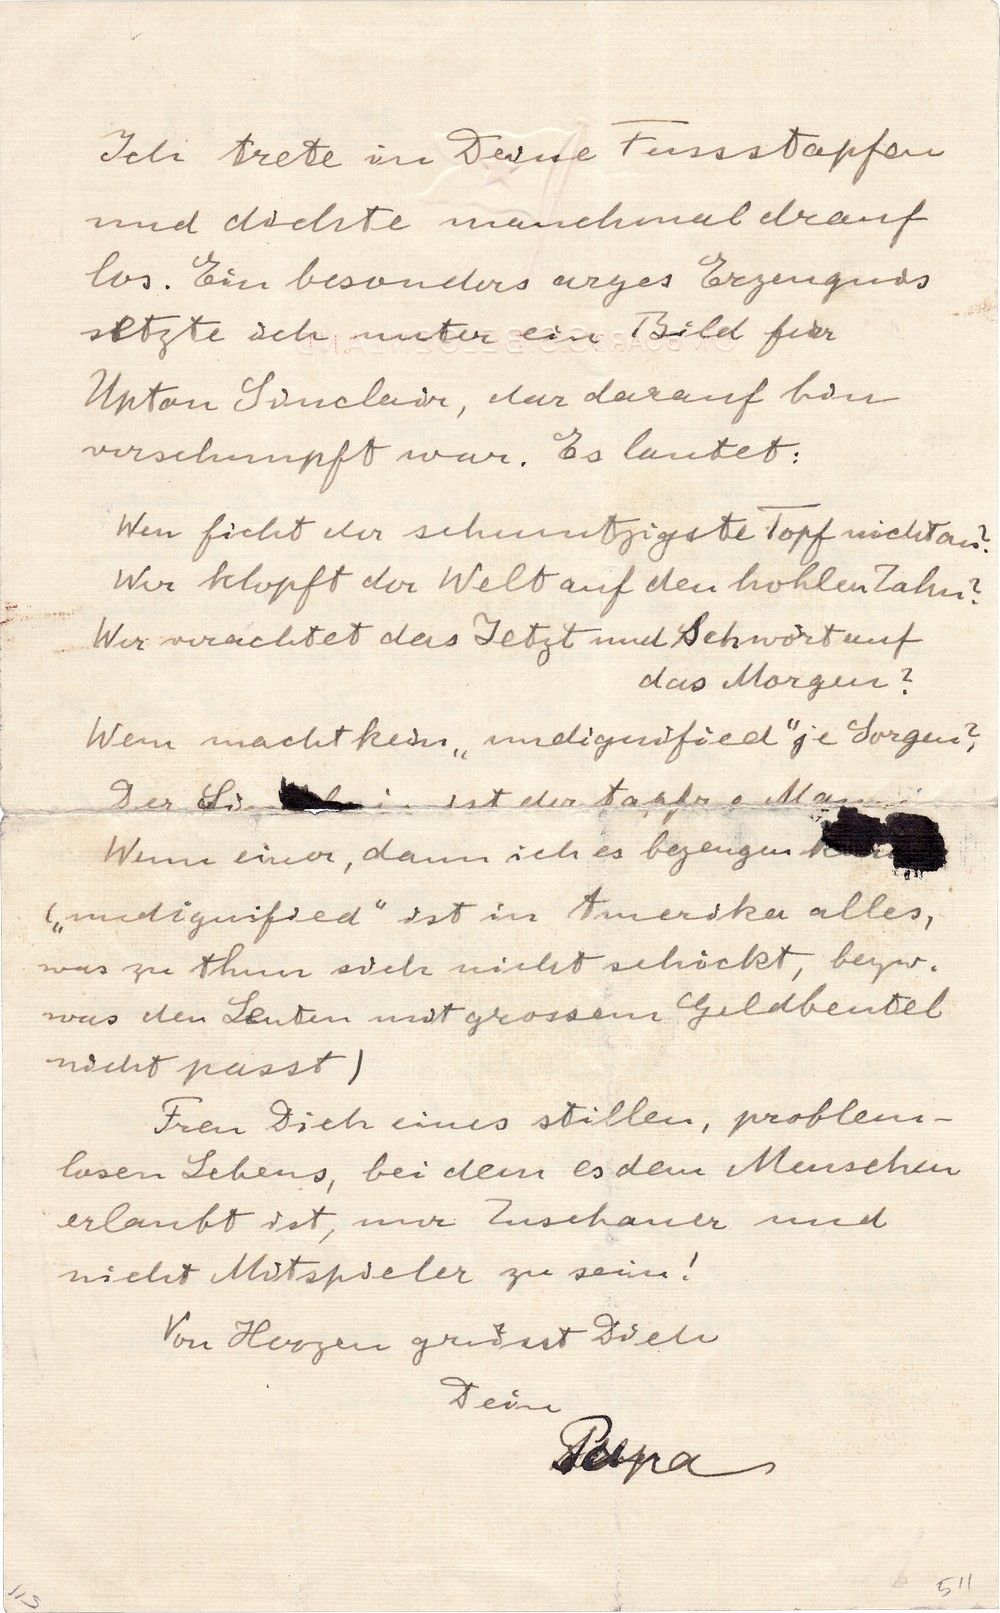 Ich trete in Deine Fussstapfen
und dichte manchmal drauf
los. Ein besonders arges Erzeugnis
setzte ich unter ein Bild fuer
Upton Sinclair, der darauf hin
verschnupft war. Es lautet:
Wen ficht der schmutzigste Topf nicht an?
Wer klopft der Welt auf den hohlen Zahn?
Wer verachtet das Jetzt und Schwört auf
das Morgen?
Wem macht kein „undignified" je Sorgen?,
Der ist der tapfre Mann
Wenn einer, dann ich es bezeugen kann
(„undignified" ist in Amerika alles,
was zu thun sich nicht schickt, bezw.
was den Leuten mit grossem Geldbeutel
nicht passt)
Freu Dich eines stillen, problem-
losen Lebens, bei dem es dem Menschen
erlaubt ist, nur Zuschauer und
nicht Mitspieler zu sein!
Von Herzen grüsst Dich
Dein
Papa
113
511